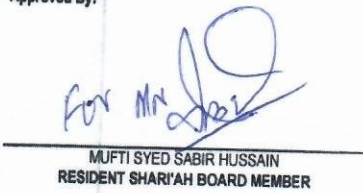 Approved By:
For MN
MUFTI SYED SABIR HUSSAIN
RESIDENT SHARI'AH BOARD MEMBER